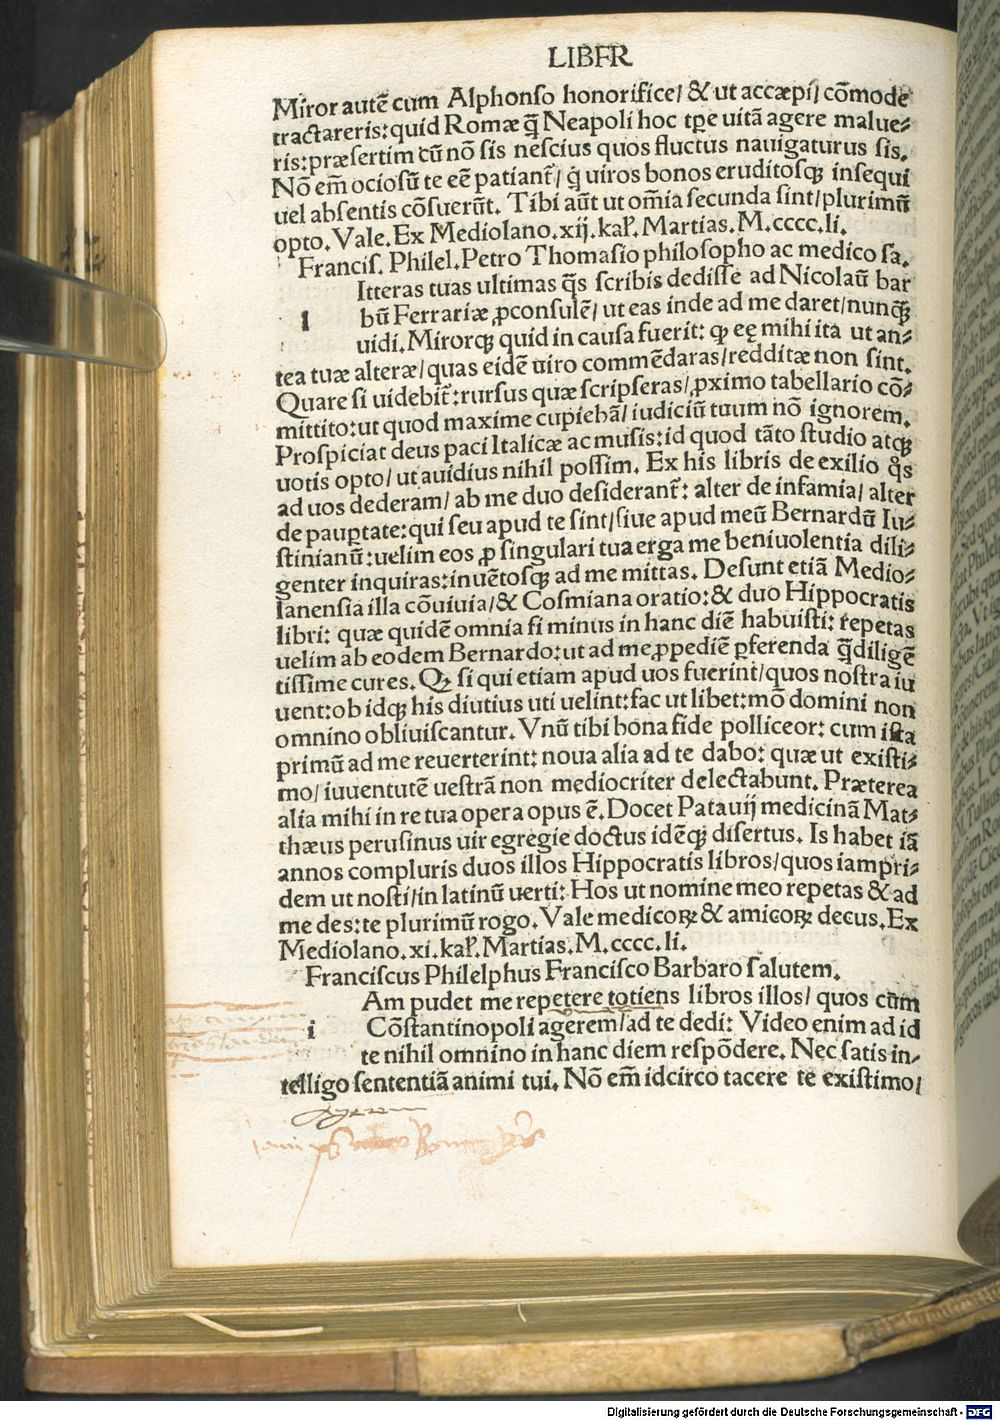 LIBER
Miror autē cum Alphonso honorifice/ & ut accæpi/ cōmode
tractareris: quid Romæ q̄ Neapoli hoc tpe uitā agere malue⸗
ris: præsertim cū nō sis nescius quos fluctus nauigaturus sis.
Nō em̄ ociosū te eē patiant᷑/ q̇ uiros bonos eruditosqꝫ insequi
uel absentis cōsuerūt. Tibi aūt ut om̄ia secunda sint/ plurimū
opto. Vale. Ex Mediolano. xij. kal̓. Martias. M. cccc. li.
Francis. Philel. Petro Thomasio philosopho ac medico sa.
Itteras tuas ultimas q̄s scribis dedisse ad Nicolaū bar
l bū Ferrariæ ꝓconsulē/ ut eas inde ad me daret/ nunqꝫ
uidi. Mirorqꝫ quid in causa fuerit: ꝙ eę mihi ita ut an⸗
tea tuæ alteræ/ quas eidē uiro commēdaras/ redditæ non sint.
Quare si uidebit᷑: rursus quæ scripseras/ ꝓximo tabellario cō⸗
mittito: ut quod maxime cupiebā/ iudiciū tuum nō ignorem.
Prospiciat deus paci Italicæ ac musis: id quod tāto studio atqꝫ
uotis opto/ ut auidius nihil possim. Ex his libris de exilio q̄s
ad uos dederam/ ab me duo desiderant᷑: alter de infamia/ alter
de paupꝑtate: qui seu apud te sint/ siue apud meū Bernardū Iu⸗
stinianū: uelim eos ꝓ singulari tua erga me beniuolentia dili⸗
genter inquiras: inuētosqꝫ ad me mittas. Desunt etiā Medio⸗
lanensia illa cōuiuia/ & Cosmiana oratio: & duo Hippocratis
libri: quæ quidē omnia si minus in hanc diē habuisti: repetas
uelim ab eodem Bernardo: ut ad me ꝓpediē ꝑferenda q̄diligē
tissime cures. Qꝫ si qui etiam apud uos fuerint/ quos nostra iu
uent: ob idqꝫ his diutius uti uelint: fac ut libet: mō domini non
omnino obliuiscantur. Vnū tibi bona fide polliceor: cum ista
primū ad me reuerterint: noua alia ad te dabo: quæ ut existi⸗
mo/ iuuentutē uestrā non mediocriter delectabunt. Præterea
alia mihi in re tua opera opus ē. Docet Patauij medicinā Mat⸗
thæus perusinus uir egregie doctus idēqꝫ disertus. Is habet iā
annos compluris duos illos Hippocratis libros/ quos iampri⸗
dem ut nosti/ in latinū uerti: Hos ut nomine meo repetas & ad
me des: te plurimū rogo. Vale medicoꝝ & amicoꝝ decus. Ex
Mediolano. xi. kal̓. Martias. M. cccc. li.
Franciscus Philelphus Francisco Barbaro salutem.
Am pudet me repetere totiens libros illos/ quos cum
i Cōstantinopoli agerem/ ad te dedi: Video enim ad id
te nihil omnino in hanc diem respōdere. Nec satis in⸗
telligo sententiā animi tui. Nō em̄ idcirco tacere te existimo/
Digitalisierung gefördert durch die Deutsche Forschungsgemeinschaft - DFG